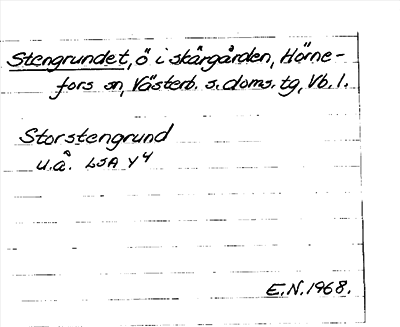 Stengrundet, ö i skärgården, Hörne-
fors sn, Västerb. s. doms. tg, Vb. l.
Storstengrund
u.å. LSA Y4
E.N. 1968.